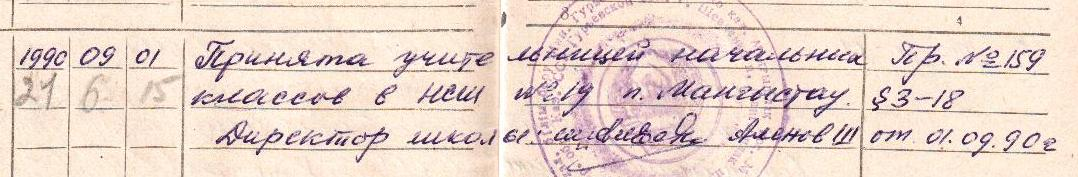 1990 09 01 Принята учительницей начальных Пр. № 159
21 6 15 классов в НСШ № 19 п. Мангыстау. §3-18
Директор школы: Аленов Ш от 01.09.90г